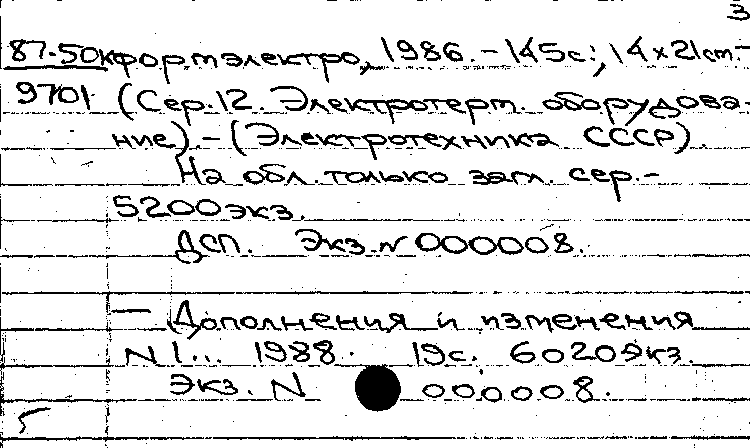 3
87-50к формэлектро, 1986. - 145с.; 14 x 21cm. -
9701 (Сер. 12. Электротерм. оборудова-
ние). - (Электротехника СССР).
На обл. только загл. сер. -
5200 экз.
ДСП. Экз. N 000008.
— Дополнения и изменения
N 1... 1988. 19с. 6020 экз.
Экз. N 000008.
5